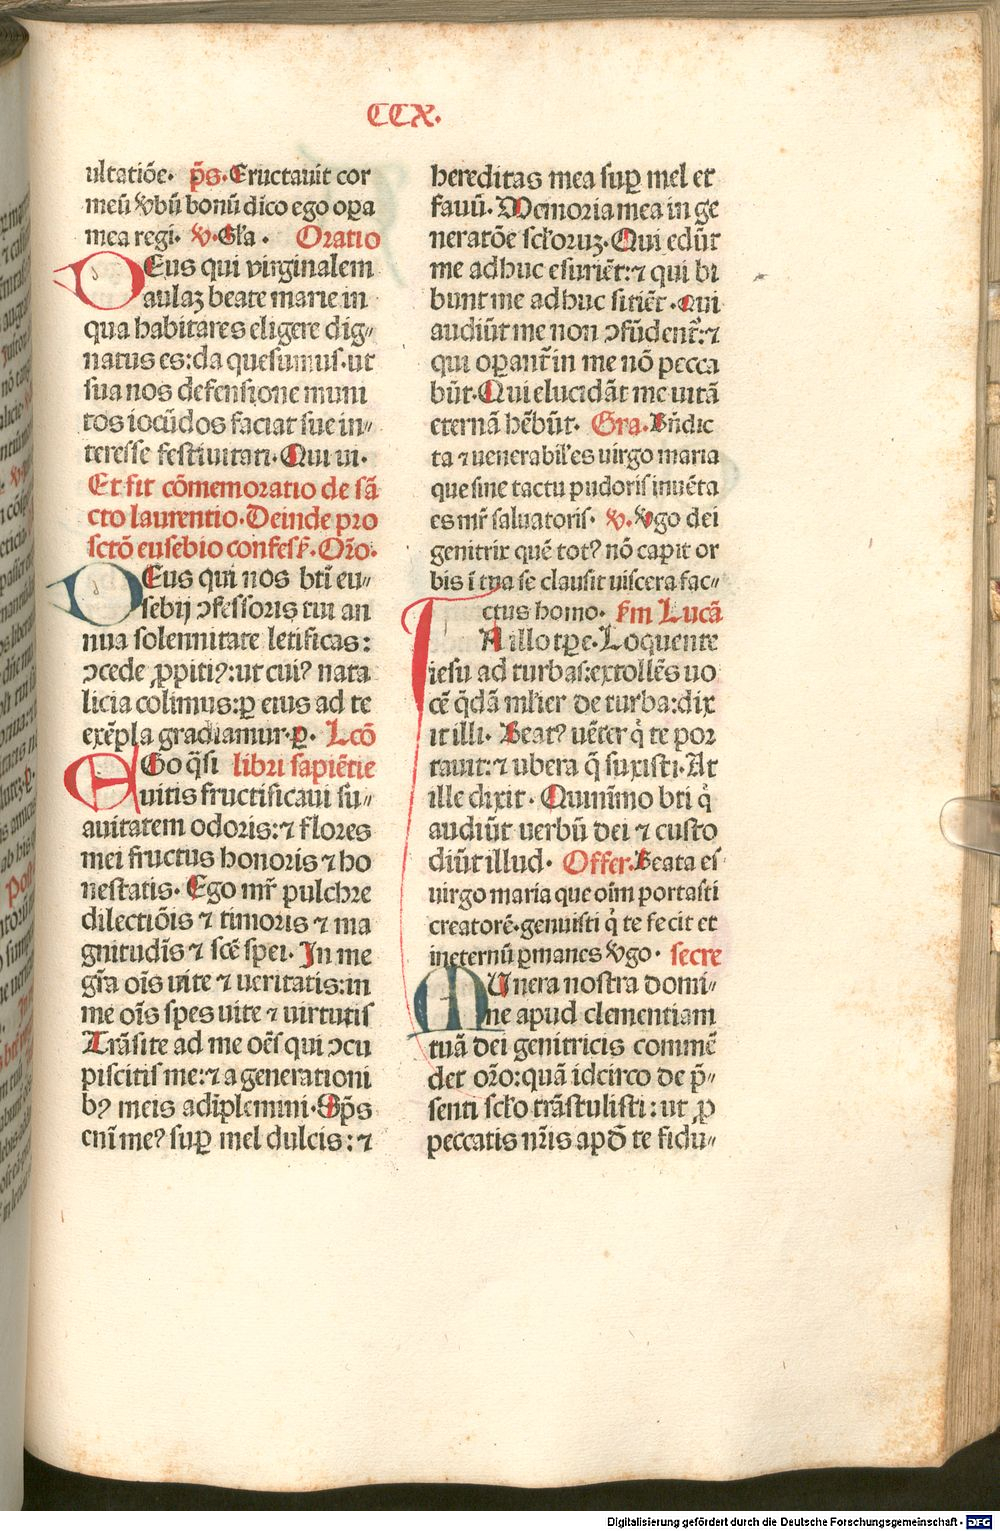 CCX.
ultatiōe. p̄s. Eructauit cor
meū ꝟbū bonū dico ego oꝑa
mea regi. ꝟ. Gl'a. Oratio
DEus qui virginalem
aulaꝫ beate marie in
qua habitares eligere dig⸗
natus es: da quesumus. ut
sua nos defensione muni
tos iocūdos faciat sue in⸗
teresse festiuitati. Qui ui.
Et fit cōmemoratio de sā
cto laurentio. Deinde pro
sctō eusebio confess̄. Or̄o.
DEus qui nos bt̄i eu⸗
sebij ꝯfessoris tui an
nua solennitate letificas:
ꝯcede ꝓpitiꝰ: ut cuiꝰ nata
licia colimus: ꝑ eius ad te
exēpla gradiamur. ꝑ. Lcō
EGo q̄si libri sapiētie
uitis fructificaui su⸗
auitatem odoris: ⁊ flores
mei fructus honoris ⁊ ho
nestatis. Ego mr̄ pulchre
dilectiōis ⁊ timoris ⁊ ma
gnitudīs ⁊ scē spei. In me
gr̄a oīs uite ⁊ ueritatis: in
me oīs spes uite ⁊ uirtutis
Trāsite ad me oēs qui ꝯcu
piscitis me: ⁊ a generationi
bꝰ meis adiplemini. Sp̄s
eni̅ meꝰ suꝑ mel dulcis: ⁊
hereditas mea suꝑ mel et
fauū. Memoria mea in ge
neratōe sctoruꝫ. Qui edūt
me adhuc esuriēt: ⁊ qui bi
bunt me adhuc sitiēt. Qui
audiūt me non ꝯfūdent̄: ⁊
qui oꝑant̄ in me nō pecca
būt. Qui elucidāt me uitā
eternā hēbūt. Gra. Bn̄dic
ta ⁊ uenerabil'es uirgo maria
que sine tactu pudoris inuēta
es mr̄ saluatoris. ꝟ. ꝟgo dei
genitrix quē totꝰ nō capit or
bis ī tua se clausit uiscera fac⸗
ctus homo. s̄m Lucā
IN illo tꝑe. Loquente
iesu ad turbas: extollēs uo
cē q̄dā ml'ier de turba: dix
it illi. Beatꝰ uēter q̇ te por
tauit: ⁊ ubera q̄ suxisti. At
ille dixit. Quinīmo bt̄i q̇
audiūt uerbū dei ⁊ custo
diūt illud. Offer. Beata es
uirgo maria que oīm portasti
creatorē. genuisti q̇ te fecit et
ineternū ꝑmanes ꝟgo. secre
MUnera nostra domi⸗
ne apud clementiam
tuā dei genitricis commē
det or̄o: quā idcirco de p̄⸗
senti sctō trāstulisti: ut ꝓ
peccatis nr̄is apd̄ te fidu⸗
Digitalisierung gefördert durch die Deutsche Forschungsgemeinschaft - DFG